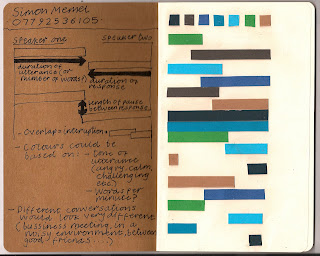 Simon Memel
07792536105
speaker one
speaker two
duration of
utterance (or
number of words?)
duration of
response
length of pause
between response
- Overlap = interruption
- Colours could be
based on: - tone of
utterance
(angry, calm,
challenging
etc)
- Words per
minute?
- Different conversations
would look very different
(bussiness meeting, in a
noisy environment, between
good friends....)